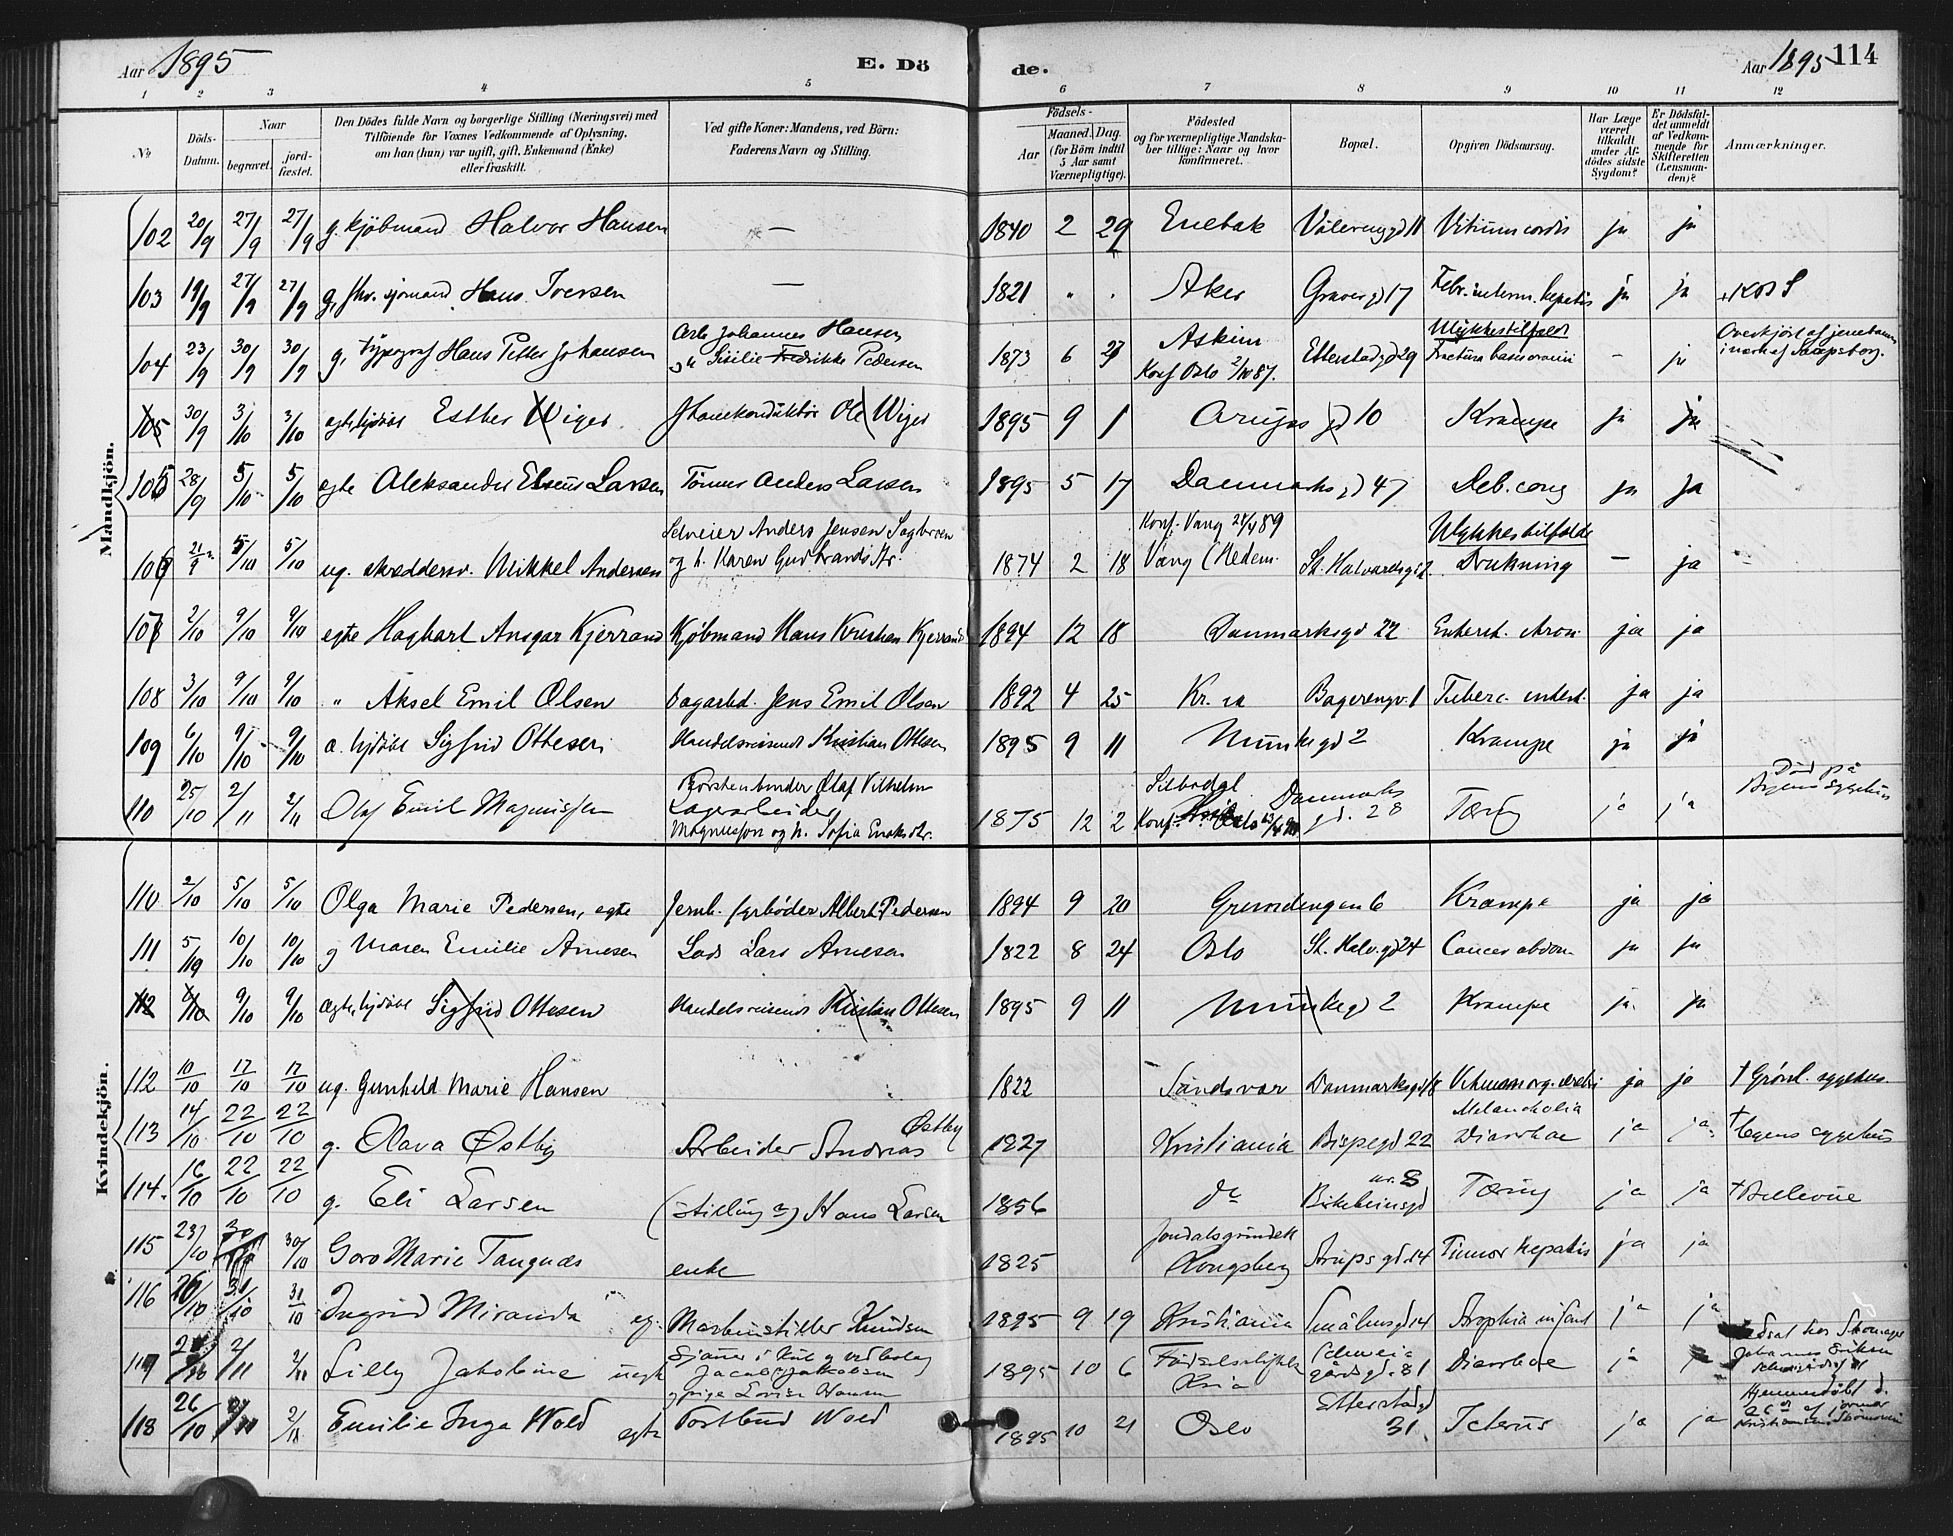 Aar 1895 E. Döde. Aar 1895 114
1 2 3 4 5 6 7 8 9 10 11 12
No Döds-Datum. Naar begravet. jord-fæstet. Den Dödes fulde Navn og borgerlige Stilling (Næringsvei) med Tilföiende for Voxnes Vedkommende af Oplysning, om han (hun) var ugift, gift, Enkemand (Enke) eller fraskilt. Ved gifte Koner: Mandens, ved Börn: Faderens Navn og Stilling. Födsels- Aar Maaned. Dag. (for Börn indtil 5 Aar samt Værnepligtige). Födested og for værnepligtige Mandskaber tillige: Naar og hvor konfirmeret. Bopæl. Opgiven Dödsaarsag. Har Læge været tilkaldt under Afdödes sidste Sygdom? Er Dödsfaldet anmeldt af Vedkommende for Skifteretten (Lensmanden)? Anmærkninger.
Mandkjön.
102 20/9 27/9 27/9 g. kjöbmand Halvor Hansen — 1840 2 29 Enebak Vålerenggd 11 Vitium cordis ja ja
103 19/9 27/9 27/9 g, fhv. sjömand Hans Iversen — 1821 " . Aker Gravergd 17 Febr. interm. hepatis ja ja
104 23/9 30/9 30/9 g, typograf Hans Petter Johansen Arb. Johannes Hansen og Sisilie Fredrikke Pedersen 1873 6 27 Askim Konf Oslo 2/10 87. Etterstadgd 29 Ulykkestilfælde Fractura basis cranii — ja Overkjört af jernebanen i nærh. af Sarpsborg.
105 30/9 3/10 3/10 egte, hjdöbt Esther Wiger Jbanekonduktör Ole Wiger 1895 9 1 Arups gd 10 Krampe ja ja
105 28/9 5/10 5/10 egte Aleksander Elenus Larsen Tömmer Anders Larsen 1895 5 17 Danmarks gd 47 Deb. cong ja ja
106 21/9 5/10 5/10 ug. skreddersv. Mikkel Andersen Selveier Anders Jensen og h. Karen Gudbrandsdtr. 1874 2 18 Konf. Vang 28/4 89 Vang (Hedem. St. Halvardsgd Ulykkestilfælde Drukning — ja
107 2/10 9/10 9/10 egte Hagbart Ansgar Kjerrand Kjöbmand Hans Kristian Kjerrand 1894 12 18 Danmarksgd 22 Enterit. kron. ja ja
108 3/10 9/10 9/10 " Aksel Emil Olsen Dagarbd. Jens Emil Olsen 1892 4 25 Kr.ia Bagerengv. 1 Tuberc. enterit. ja ja
109 6/10 9/10 9/10 æ. hjdöbt Sigfrid Ottesen Handelsreisende Kristian Ottesen 1895 9 11 Munkegd 2 Krampe ja ja
110 25/10 2/11 2/11 Olaf Emil Magnussen Börstenbinder Olaf Vilhelm Lagerarbeider Magnussen og h. Sofia 1875 12 2 Silbodal Konf. Oslo Danmarks gd. 28 Tæring ja ja Död på Byens Sygehus
Kvindekjön.
110 2/10 5/10 5/10 Olga Marie Pedersen, egte Jernb. fyrböder Albert Pedersen 1894 9 20 6 Krampe ja ja
111 5/10 10/10 10/10 g Maren Emilie Arnesen Lods Lars Arnesen 1822 8 24 Oslo St. Halv.gd 24 Cancer abdom. ja ja
112 6/10 9/10 9/10 Ægte, hjdöbt Sigfrid Ottesen Handelsreisende Kristian Ottesen 1895 9 11 Munkegd 2 Krampe ja. ja
112 10/10 17/10 17/10 ug. Gunhild Marie Hansen 1822 Sandsvær Danmarksgd 18 Vitium org. cerebri ja ja † Grönl. sygehus
113 14/10 22/10 22/10 g. Olava Østby Arbeider Andreas Østby 1827 Kristiania Bispegd 22 Melancholia Diarrhoe ja ja † Egens sygehus
114. 16/10 22/10 22/10 g. Eli Larsen (stilling ?) Hans Larsen 1856 do Birkebeinergd nr. 8 Tæring ja ja † Bellevue
115 23/10 30/10 30/10 Goro Marie Tangnæs enke 1825 Jondalsgrinden Kongsberg Strupsgd 14 Tumor hepatis ja ja
116 26/10 31/10 31/10 Ingrid Miranda eg. Maskinstiller Knudsen 1895 9 19 Kristiania Smålensgd 14 Atrophia infant ja ja
117 2/11 2/11 Lilly Jakobine uegte Sjauer i Kul og vedbolag Jacob Jakobsen og pige Lovise Hansen 1895 10 6 Födselsstiftels Kria Schweigårdsgd. 81 Diarrhoe ja Udsat hos Skomager Johannes Eriksen
118 26/10 2/11 Emilie Inga Wold egte Postbud Wold 1895 10 21 Oslo Etterstadgd 31. Icterus ja ja Hjemmedöbt d. 26de af jormor